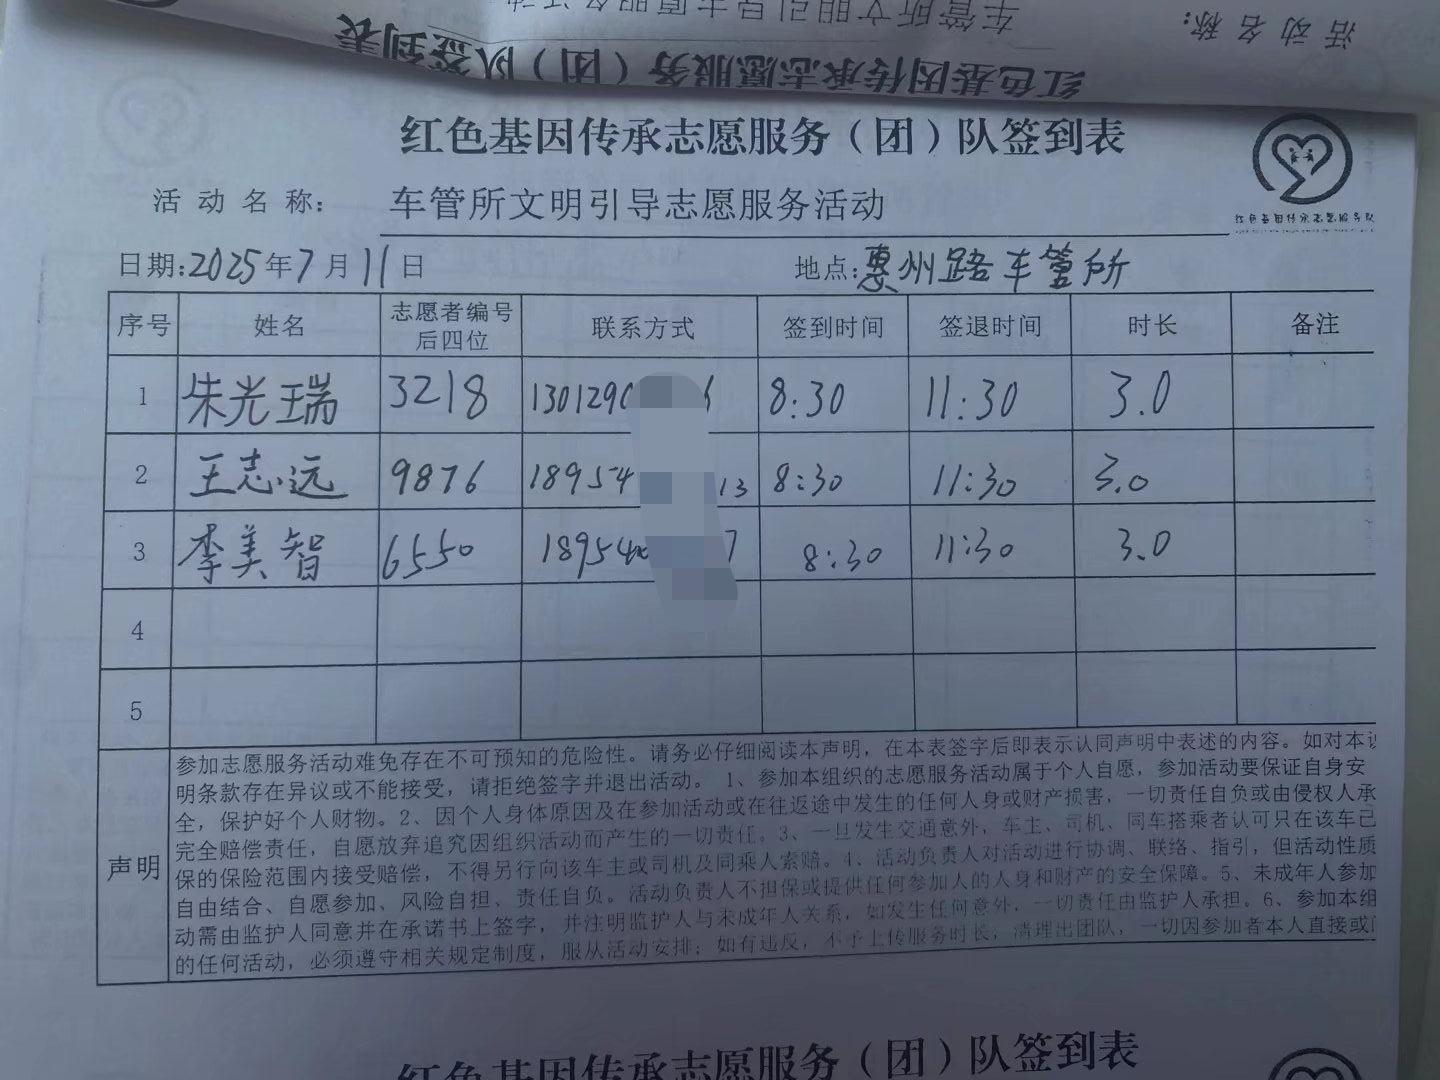 活动名称: 车管所文明引导志愿服务活动
红色基因传承志愿服务（团）队签到表
红色基因传承志愿服务（团）队签到表
红色基因传承志愿服务队
活动名称: 车管所文明引导志愿服务活动
日期:2025年7月11日 地点:惠州路车管所
序号 姓名 志愿者编号后四位 联系方式 签到时间 签退时间 时长 备注
1 朱光瑞 3218 130129 8:30 11:30 3.0
2 王志远 9876 18954 13 8:30 11:30 3.0
3 李美智 6550 18954 7 8:30 11:30 3.0
4
5
声明
参加志愿服务活动难免存在不可预知的危险性。请务必仔细阅读本声明，在本表签字后即表示认同声明中表述的内容。如对本
明条款存在异议或不能接受，请拒绝签字并退出活动。1、参加本组织的志愿服务活动属于个人自愿，参加活动要保证自身安
全，保护好个人财物。2、因个人身体原因及在参加活动或在往返途中发生的任何人身或财产损害，一切责任自负或由侵权人承
完全赔偿责任，自愿放弃追究因组织活动而产生的一切责任。3、一旦发生交通意外，车主、司机、同车搭乘者认可只在该车已
保的保险范围内接受赔偿，不得另行向该车主或司机及同乘人索赔。4、活动负责人对活动进行协调、联络、指引，但活动性质
自由结合、自愿参加、风险自担、责任自负。活动负责人不担保或提供任何参加人的人身和财产的安全保障。5、未成年人参加
动需由监护人同意并在承诺书上签字，并注明监护人与未成年人关系，如发生任何意外，一切责任由监护人承担。6、参加本组
的任何活动，必须遵守相关规定制度，服从活动安排；如有违反，不予上传服务时长，清理出团队，一切因参加者本人直接或
红色基因传承志愿服务（团）队签到表